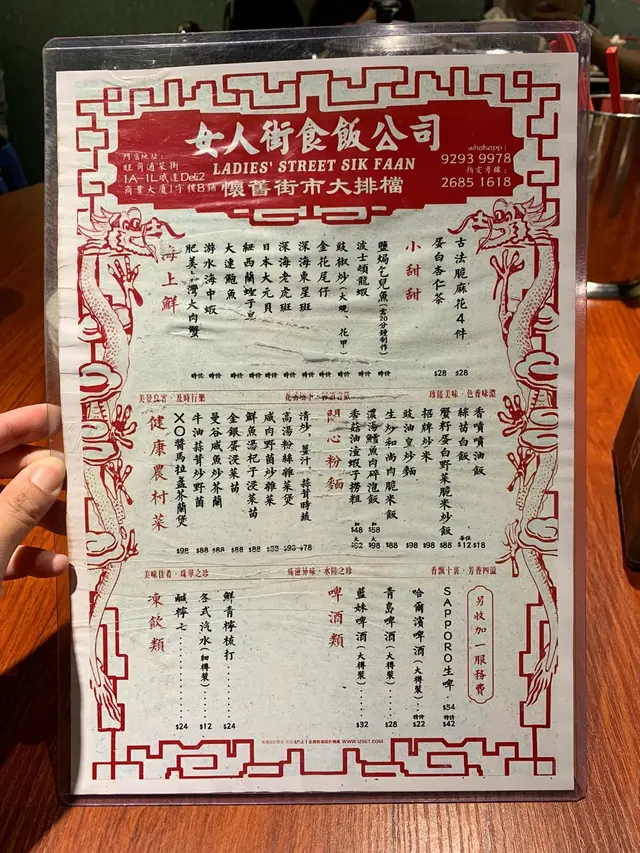 女人街食飯公司
LADIES' STREET SIK FAAN
懷舊街市大排檔
門店地址:
旺角通菜街
1A-1L威達Deli2
商業大廈1字樓B舖
whatsapp:
9293 9978
2685 1618
海上鮮
游水海中蝦 時價
大連鮑魚 時價
日本大元貝 時價
深海老虎斑 時價
深海東星班 時價
金花尾仔 時價
豉椒炒(大蜆、花甲) 時價
波士頓龍蝦 時價
鹽焗乞兒魚(需20分鐘制作) 時價
小甜甜
蛋白杏仁茶 $28
古法脆麻花4件 $28
美景良宵·及時行樂
珍饈美味·色香味濃
健康農村菜
XO醬馬拉盞芥蘭煲 $98
牛油蒜茸炒野菌 $88
曼谷咸魚炒芥蘭 $88
金銀蛋浸菜苗 $88
鮮魚湯杞子浸菜苗 $88
咸肉野菌炒雜菜 $88
高湯粉絲雜菜煲
清炒,薑汁,蒜茸時蔬 $78
開心粉麵
香菇油渣蝦子撈粗 細$48 大$92
濃湯鱔魚肉碎泡飯 細$58 大$98
生炒和尚肉脆米飯 $88
豉油皇炒麵 $88
招牌炒米 $98
蟹籽蛋白野菜脆米炒飯 $88
絲苗白飯 每位$12
香噴噴油飯 $18
美味佳肴·珠翠之珍
殊滋异味·水陸之珍
香飄十裏·芳香四溢
凍飲類
鹹檸七 $24
各式汽水(細樽裝) $12
鮮青檸梳打 $24
啤酒類
藍妹啤酒(大樽裝) $32
青島啤酒(大樽裝) $28
哈爾濱啤酒(大樽裝) 特價$22
SAPPORO生啤 $54 特價$42
另收加一服務費
WWW.IZSET.COM